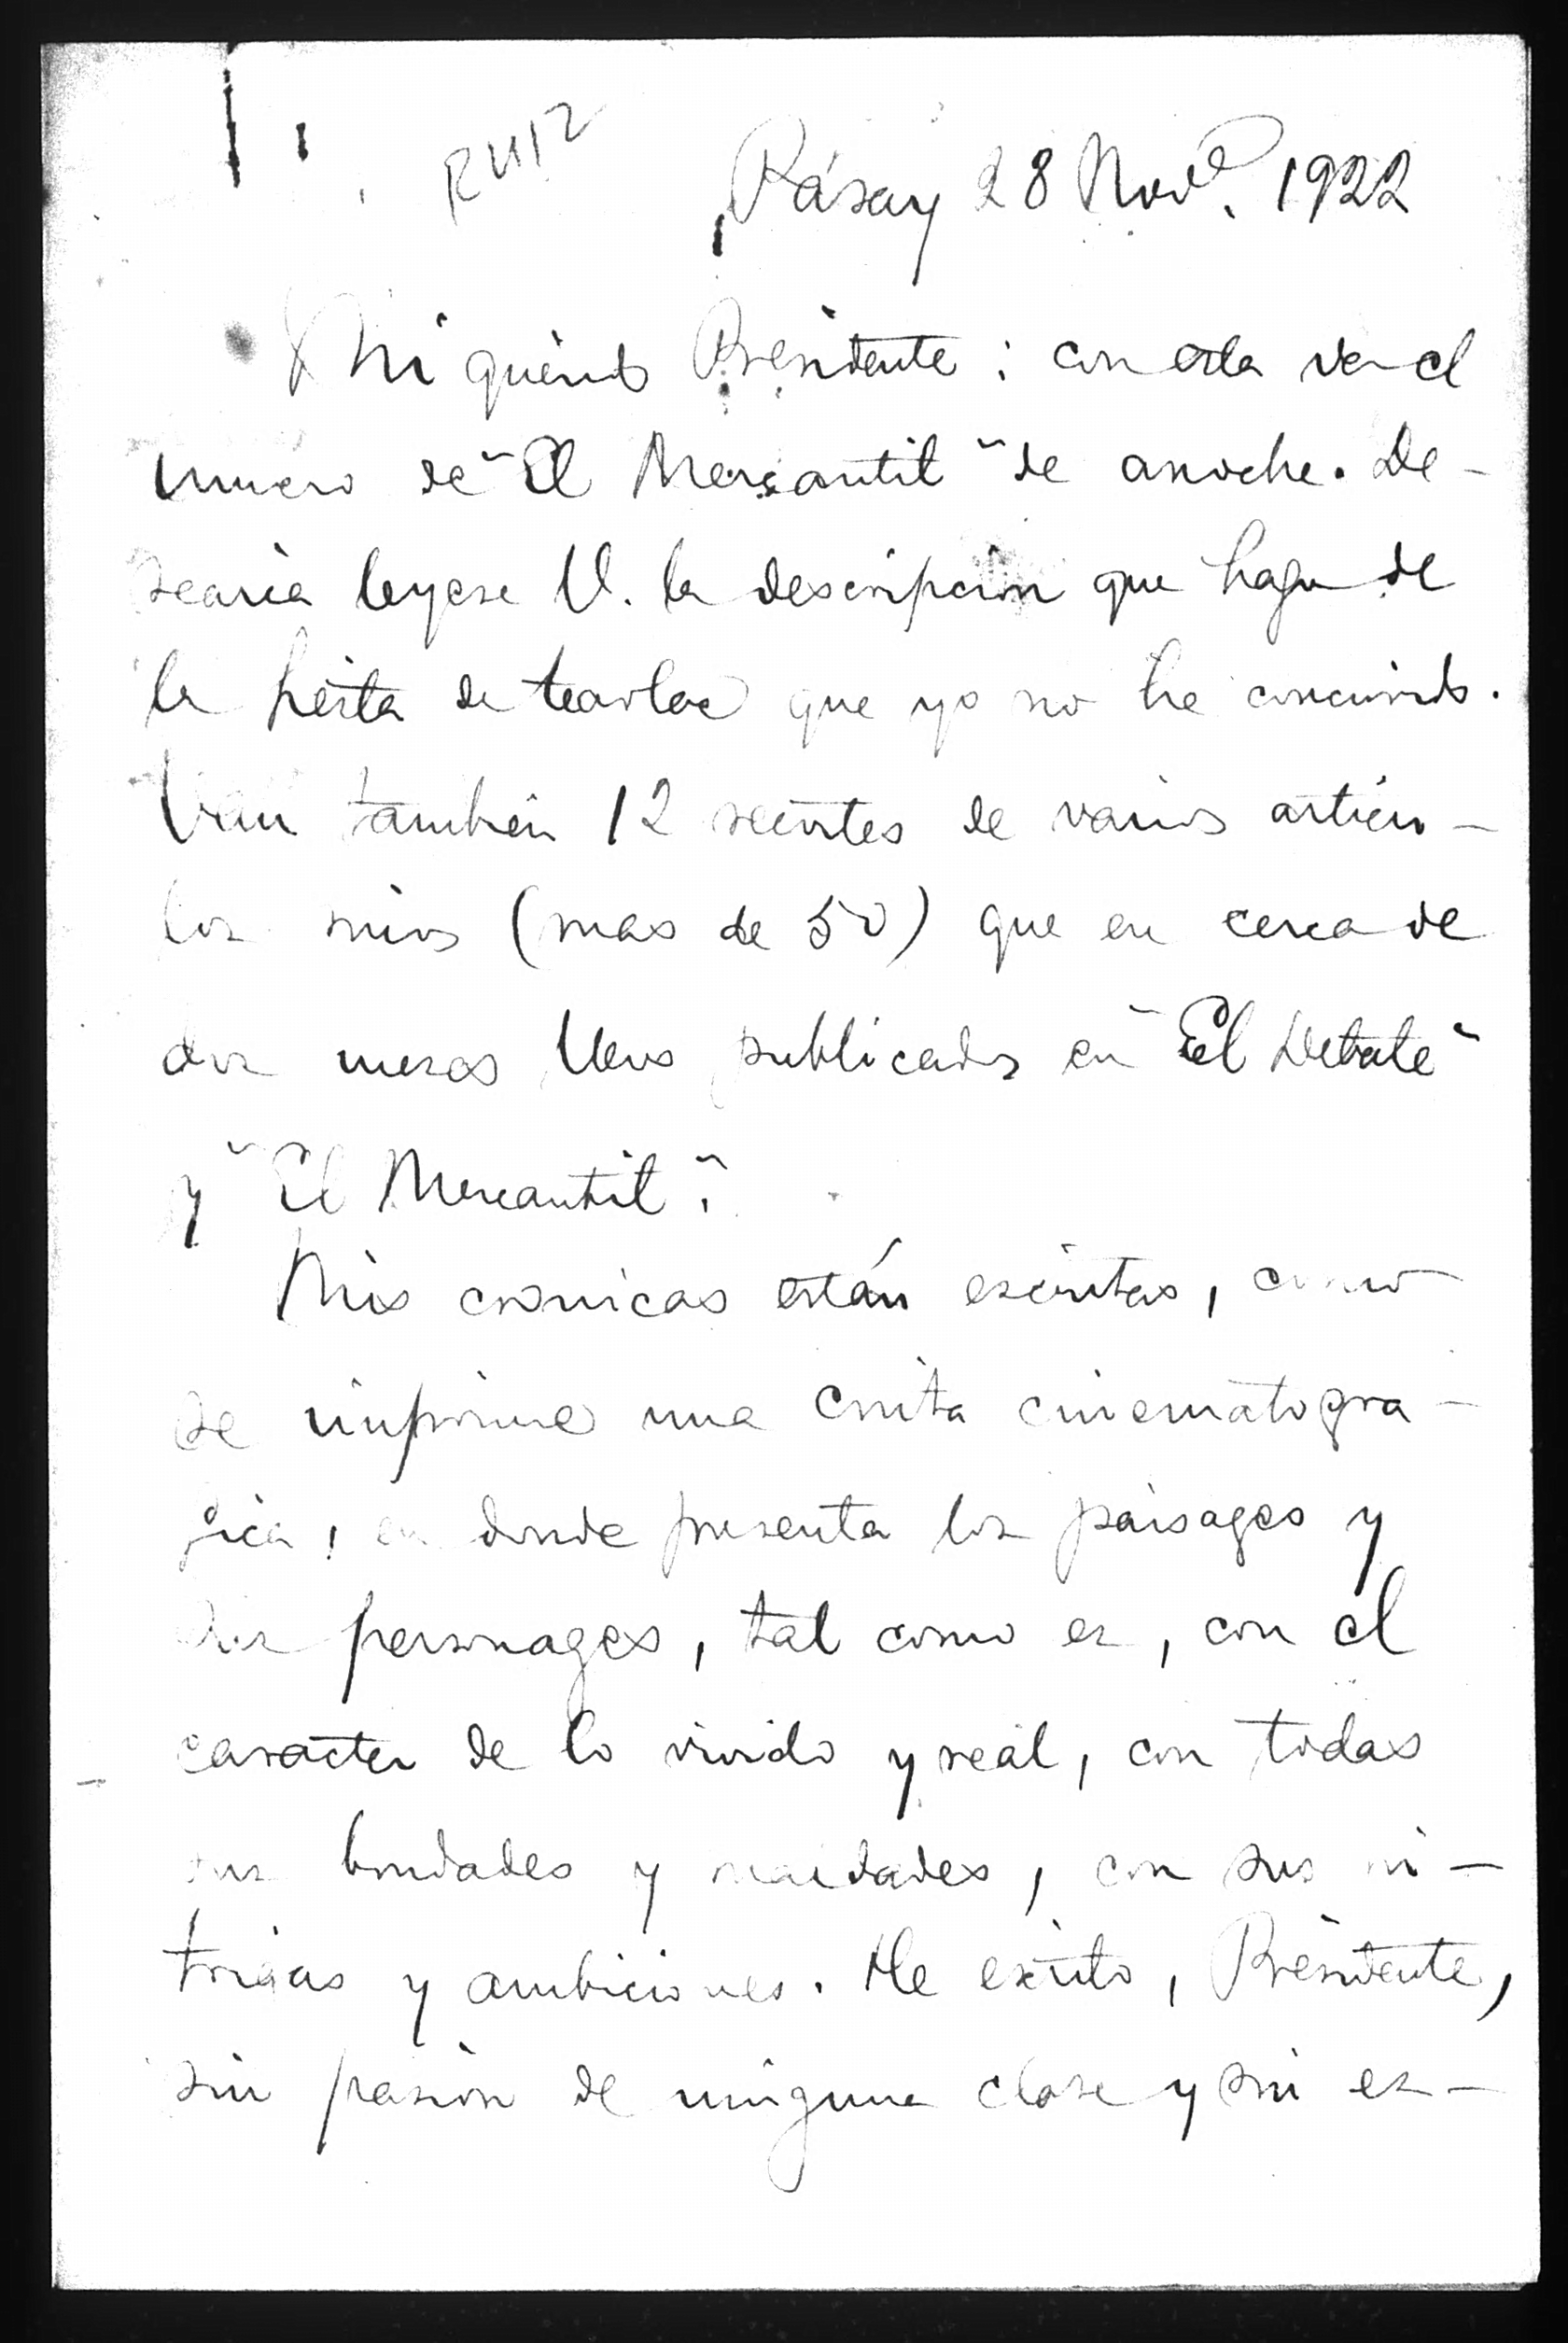 RUIZ
Pásay 28 Nov.e 1922
Mi querido Presidente: con esta va el
numero de "El Mercantil" de anoche. De-
searia leyese V. la descripcion que hago de
la fiesta de que yo no he concurrido.
Van tambien 12 recortes de varios articu-
los mios (mas de 50) que en cerca de
dos meses llevo publicados en "El Debate"
y "El Mercantil".
Mis cronicas están escritas, como
se imprime una cinta cinematogra-
fica, en donde presenta los paisages y
los personages, tal como es, con el
caracter de lo vivido y real, con todas
sus bondades y maldades, con sus in-
trigas y ambiciones. He escrito, Presidente,
sin pasion de ninguna clase y sin es-